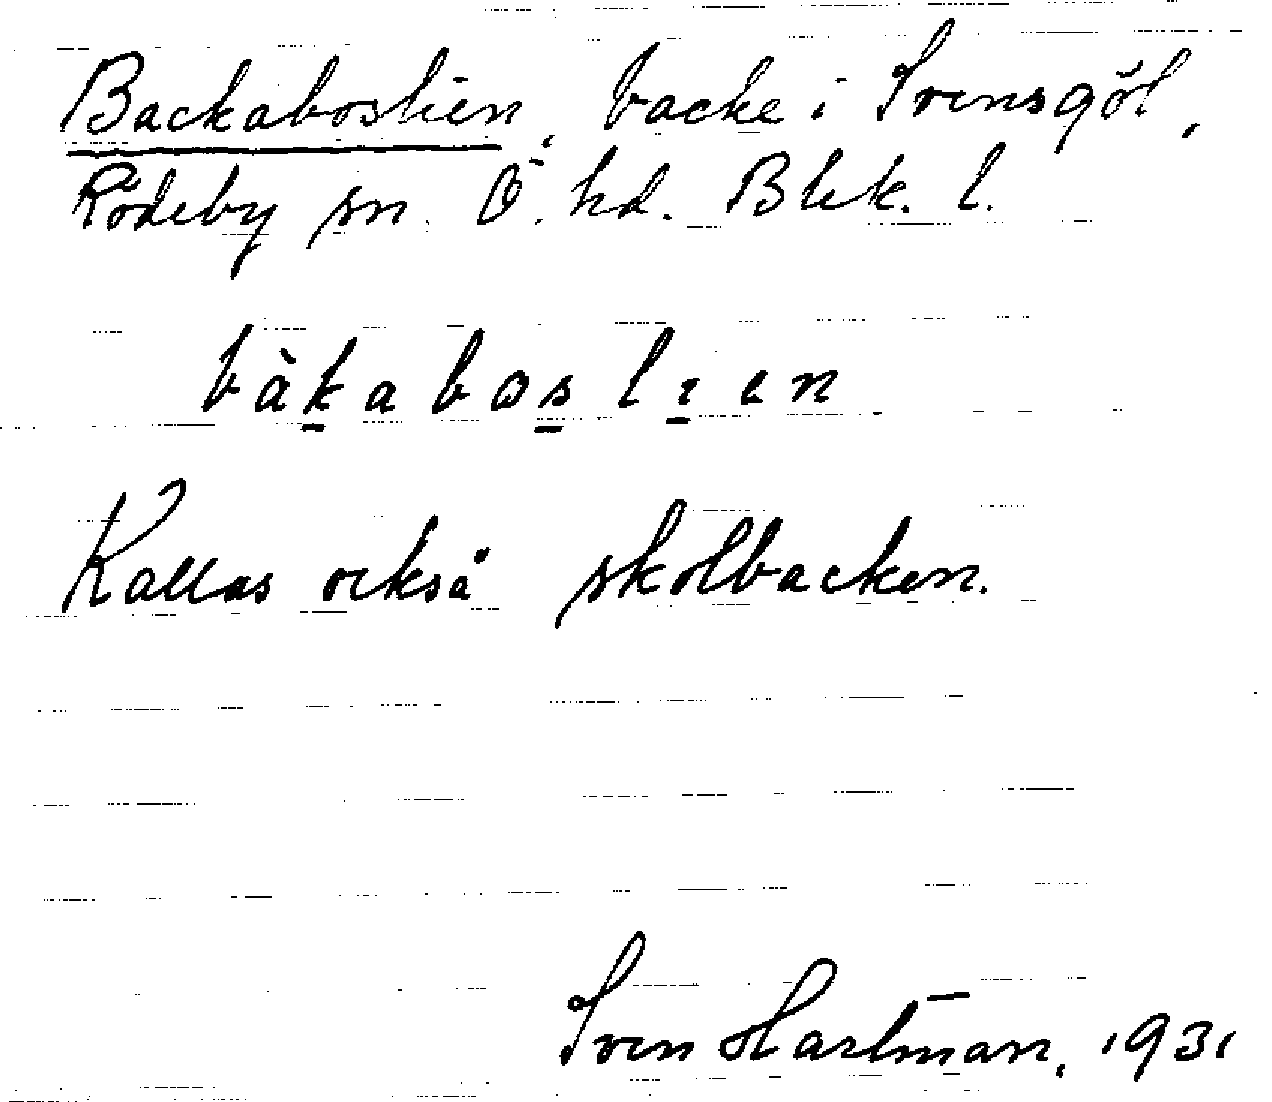 Backaboslien, backe i Svensgöl,
Rödeby sn. Ö. hd. Blek. l.
bàkabosl
Kallas också skolbacken.
Sven Hartman, 1931